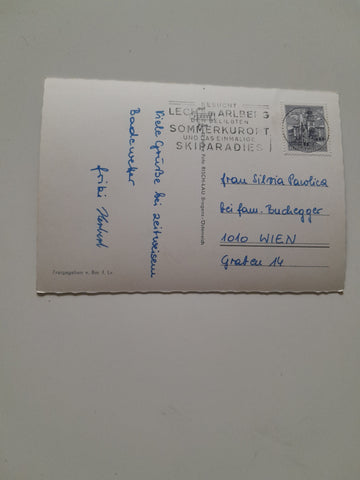 BESUCHT
LECH AM ARLBERG
DEN BELIEBTEN
SOMMERKURORT
UND DAS EINMALIGE
SKIPARADIES
Viele Grüße bei zeitweisem
Badewetter
Foto RISCH-LAU Bregenz-Österreich
frau Silvia
bei fam. Buchegger
1010 WIEN
Graben 14
Freigegeben v. Bm f. Lv.